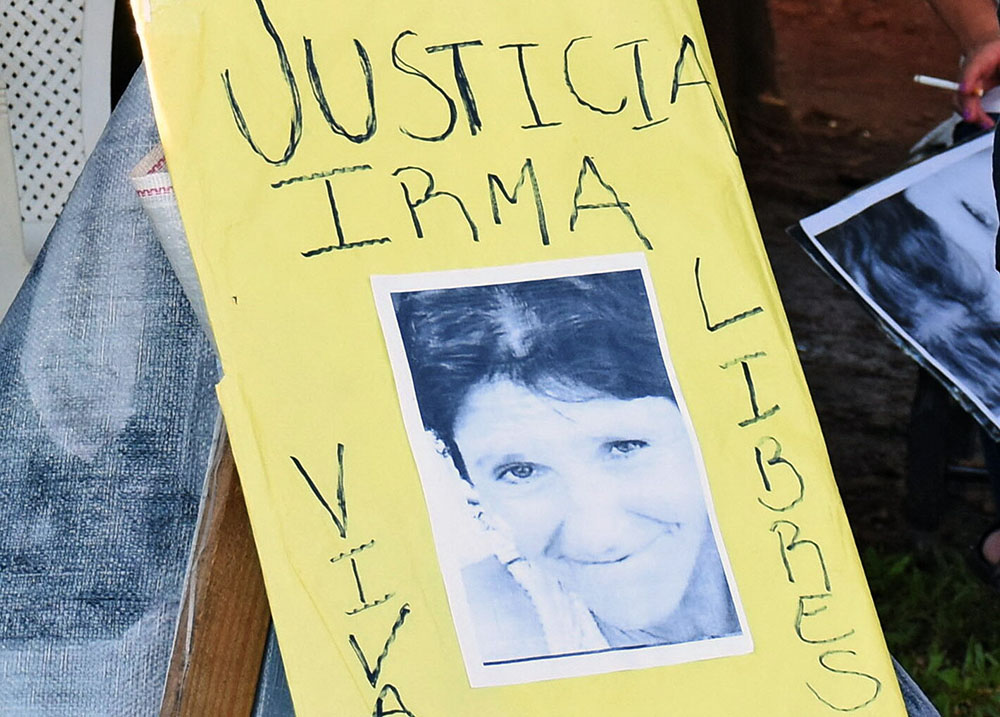 JUSTICIA
IRMA
VIVA
LIBRES